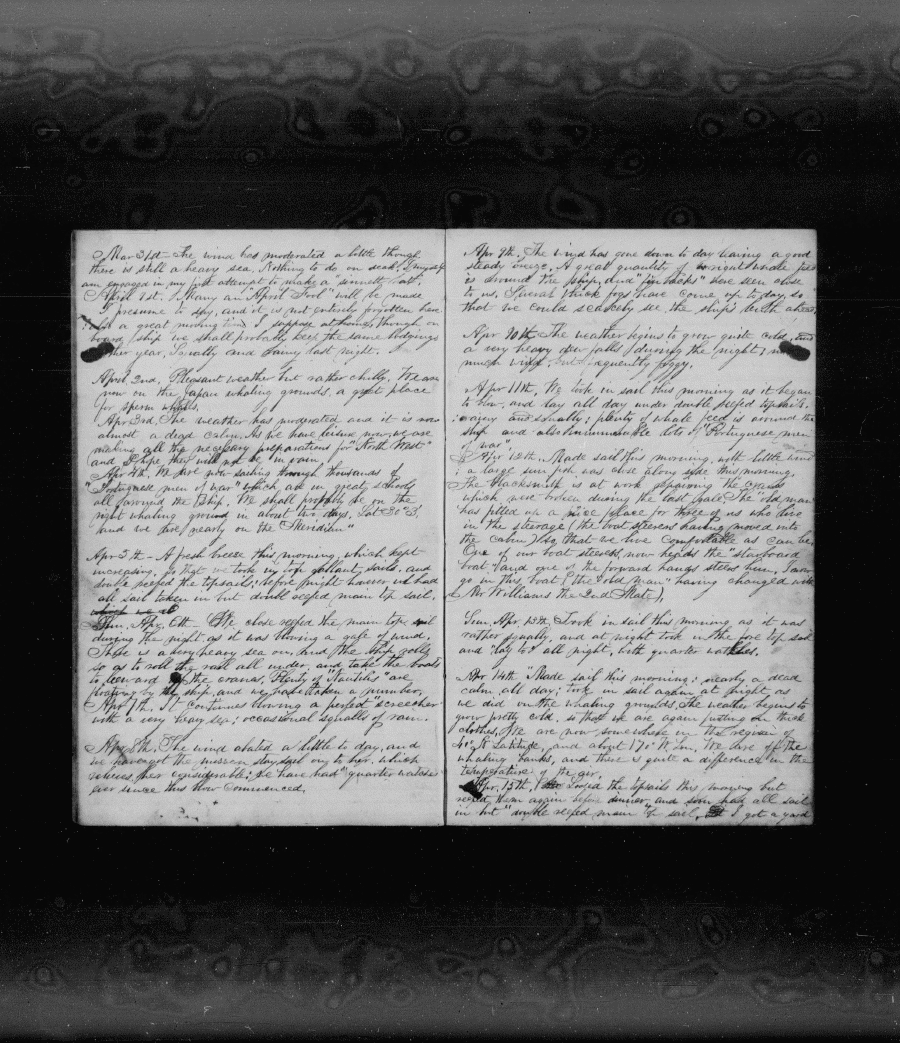 Mar 31st - The wind has moderated a little though
there is still a heavy sea. Nothing to do on deck, I myself
am engaged in my first attempt to make a "sennett hat".
April 1st. Many an "April Fool" will be made
I presume to day, and it is not entirely forgotten here.
a great moving time I suppose at home, though on
board ship we shall probably keep the same lodgings
another year. Squally and rainy last night.
April 2nd, Pleasant weather but rather chilly. We are
now on the Japan whaling grounds, a great place
for sperm whales.
Apr 3rd, The weather has moderated and it is now
almost a dead calm. As we have leisure now, we are
making all the necessary preparations for "North West"
and I hope they will not be in vain.
Apr 4th. We are now sailing through thousands of
"Portuguese men of war" which are in great schools
all around the Ship. We shall probably be on the
right whaling ground in about two days, Lat 30° 31'
and we are nearly on the "Meridian"
Apr 5th - A fresh breeze this morning, which kept
increasing, so that we took in top gallant sails, and
double reefed the topsails; before night however we had
all sail taken in but double reefed main top sail,
Sun. Apr. 6th. We close reefed the main top sail
during the night as it was blowing a gale of wind.
There is a very heavy sea on, and the ship rolls
so as to roll the rail all under, and take the boats
to leeward the cranes. Plenty of "Nautilus" are
floating by the ship, and we have taken a number.
Apr 7th. It continues blowing a perfect screecher
with a very heavy sea; occasional squalls of rain.
Apr 8th, The wind abated a little to day, and
we have got the mizzen stay sail on to her, which
relieves her considerable; we have had "quarter watches"
ever since this blow commenced.
Apr 9th. The wind has gone down to day leaving a good
steady breeze. A great quantity of right whale feed
is around the ship, and "finbacks" were seen close
to us. Several thick fogs have come up to day, so
that we could scarcely see the ship's length ahead.
Apr 10th. The weather begins to grow quite cold, and
a very heavy dew falls during the night; not
much wind, but frequently foggy.
Apr 11th. We took in sail this morning as it began
to blow, and lay all day under double reefed topsails.
rainy and squally; plenty of whale feed is around the
ship and also innumerable lots of "Portuguese men
of war"
Apr 12th. Made sail this morning, with little wind
; a large sun fish was close along side this morning.
The blacksmith is at work repairing the cranes
which were broken during the last gale. The "old man"
has fitted up a nice place for three of us who live
in the steerage (the boat steerers having moved into
the cabin) so that we live comfortable as can be.
One of our boat steerers now heads the "starboard
boat" and one of the forward hands steers him. I am to
go in this boat (the "old man" having changed with
Mr Williams the 2nd Mate),
Sun. Apr. 13th, Took in sail this morning as it was
rather squally, and at night took in the fore top sail
and "lay to" all night, with quarter watches.
Apr 14th Made sail this morning; nearly a dead
calm all day; took in sail again at night as
we did on the whaling grounds. The weather begins to
grow pretty cold, so that we are again putting on thick
clothes. We are now somewhere in the region of
40° N Latitude, and about 170° W Lon. We are off the
whaling banks, and there is quite a difference in the
temperature of the air.
Apr. 15th, Loosed the topsails this morning but
reefed them again before dinner, and soon had all sail
in but "double reefed main top sail, I got a yard